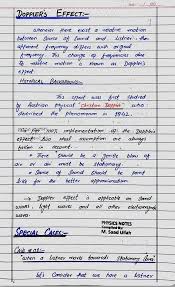 DOPPLER'S EFFECT:-
Whenever there exist a relative motion
between Source of Sound and Listner then
apparent frequency differs with original
frequency. This change of frequencies due
to relative motion is known as Doppler's
effect.
Historical Background:-
This effect was first studied
by Austrian physicist "Christian Doppler" who
described the phenomenon in 1842.
For 100% implementation of the Doppler's
effect the small assumption are
always taken in account.
There should be a gentle blow of
air or air must be stationary.
Source of Sound should be point
like for the better approximation.
Doppler effect is applicable on Sound
waves, light waves and all other electromagnetic
waves.
PHYSICS NOTES
Compiled By:
M. Saad Ullah
SPECIAL CASES:-
Case no 1:-
"when a Listner moves towards stationary Source"
Let's Consider that we have a Listner